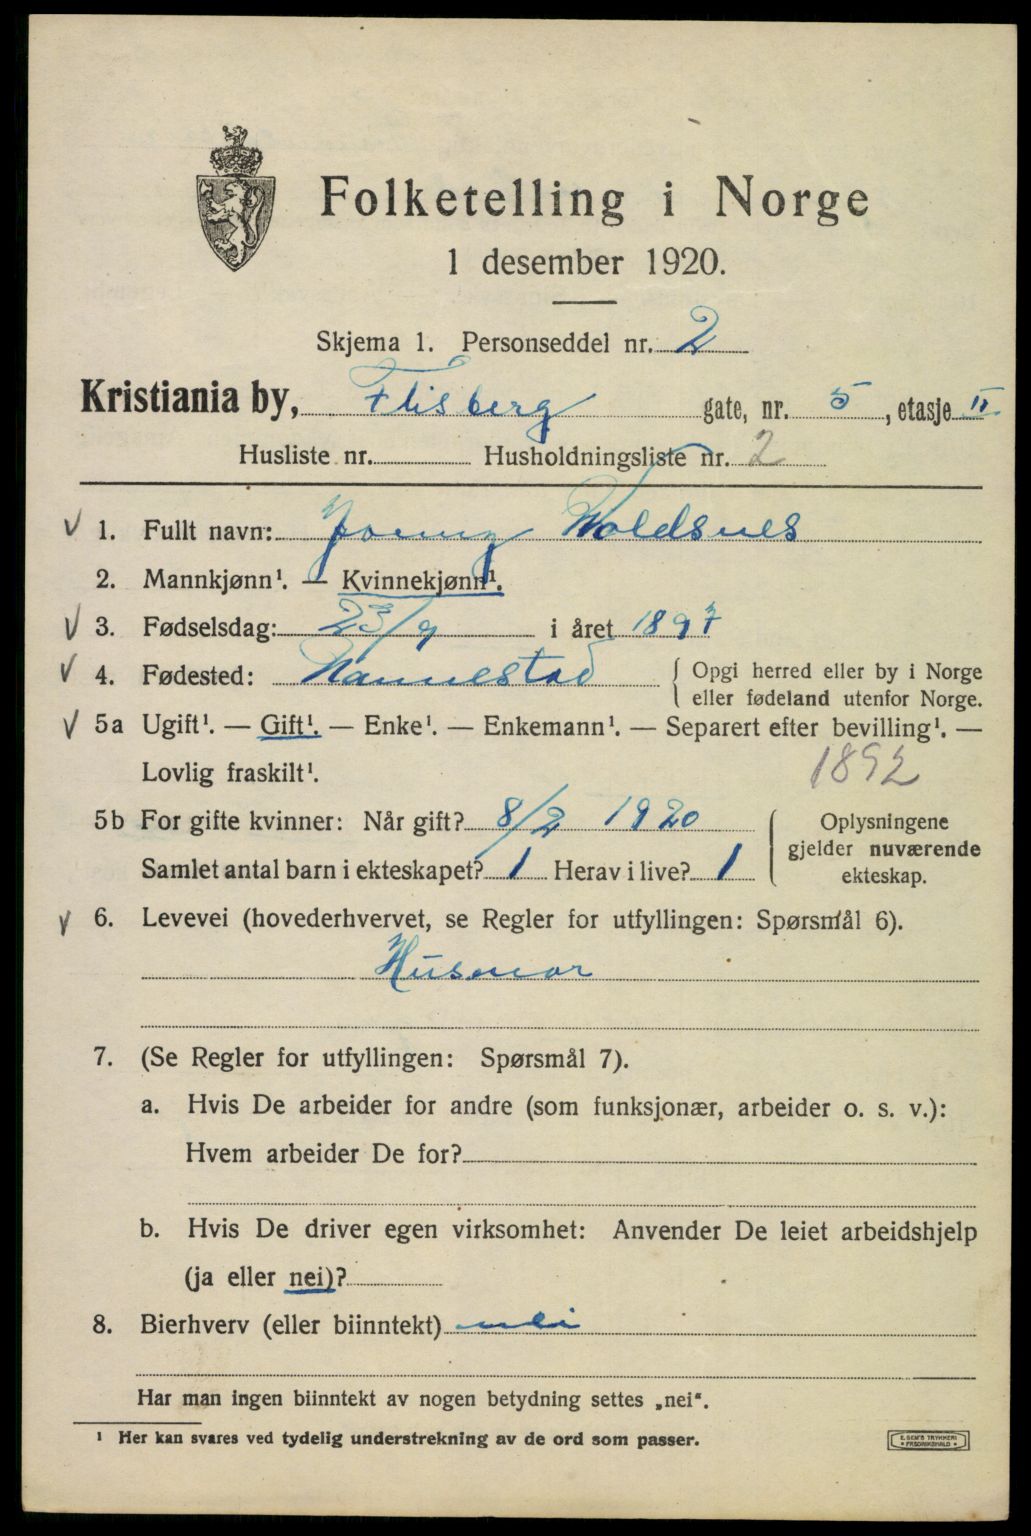 Folketelling i Norge
1 desember 1920.
Skjema 1. Personseddel nr. 2
Kristiania by, Flisberg gate, nr. 5, etasje II
Husliste nr. Husholdningsliste nr. 2
1. Fullt navn: Woldsnes
2. Mannkjønn¹. — Kvinnekjønn¹.
3. Fødselsdag: 23/9 i året 1897
4. Fødested: Nannestad Opgi herred eller by i Norge
eller fødeland utenfor Norge.
5a Ugift¹. — Gift¹. — Enke¹. — Enkemann¹. — Separert efter bevilling¹. —
Lovlig fraskilt¹. 1892
5b For gifte kvinner: Når gift? 8/2 1920 Oplysningene
gjelder nuværende
Samlet antal barn i ekteskapet? 1 Herav i live? 1 ekteskap.
6. Levevei (hovederhvervet, se Regler for utfyllingen: Spørsmål 6).
Husmor
7. (Se Regler for utfyllingen: Spørsmål 7).
a. Hvis De arbeider for andre (som funksjonær, arbeider o. s. v.):
Hvem arbeider De for?
b. Hvis De driver egen virksomhet: Anvender De leiet arbeidshjelp
(ja eller nei)?
8. Bierhverv (eller biinntekt) nei
Har man ingen biinntekt av nogen betydning settes „nei".
¹ Her kan svares ved tydelig understrekning av de ord som passer.
E. SEM'S TRYKKERI
• FREDRIKSHALD •